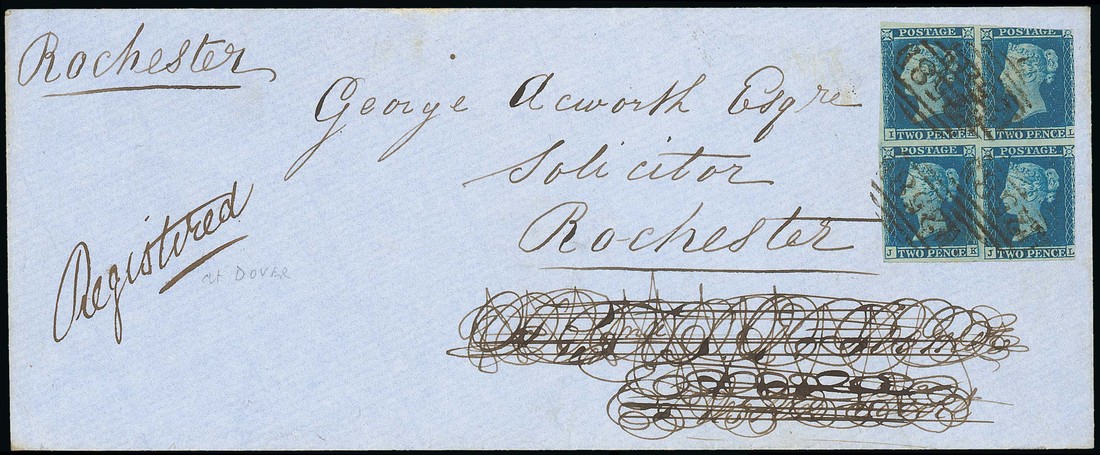 Rochester
George Acworth Esqre
Solicitor
Rochester
Registered
at DOVER
POSTAGE POSTAGE
I TWO PENCE K K TWO PENCE L
POSTAGE POSTAGE
J TWO PENCE K J TWO PENCE L